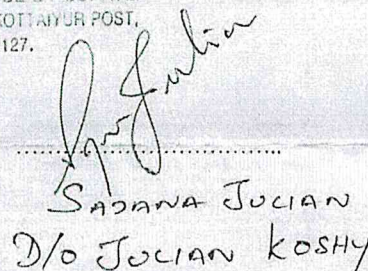 KOTTAIYUR POST,
127.
SAJANA JULIAN
D/O JULIAN KOSHY